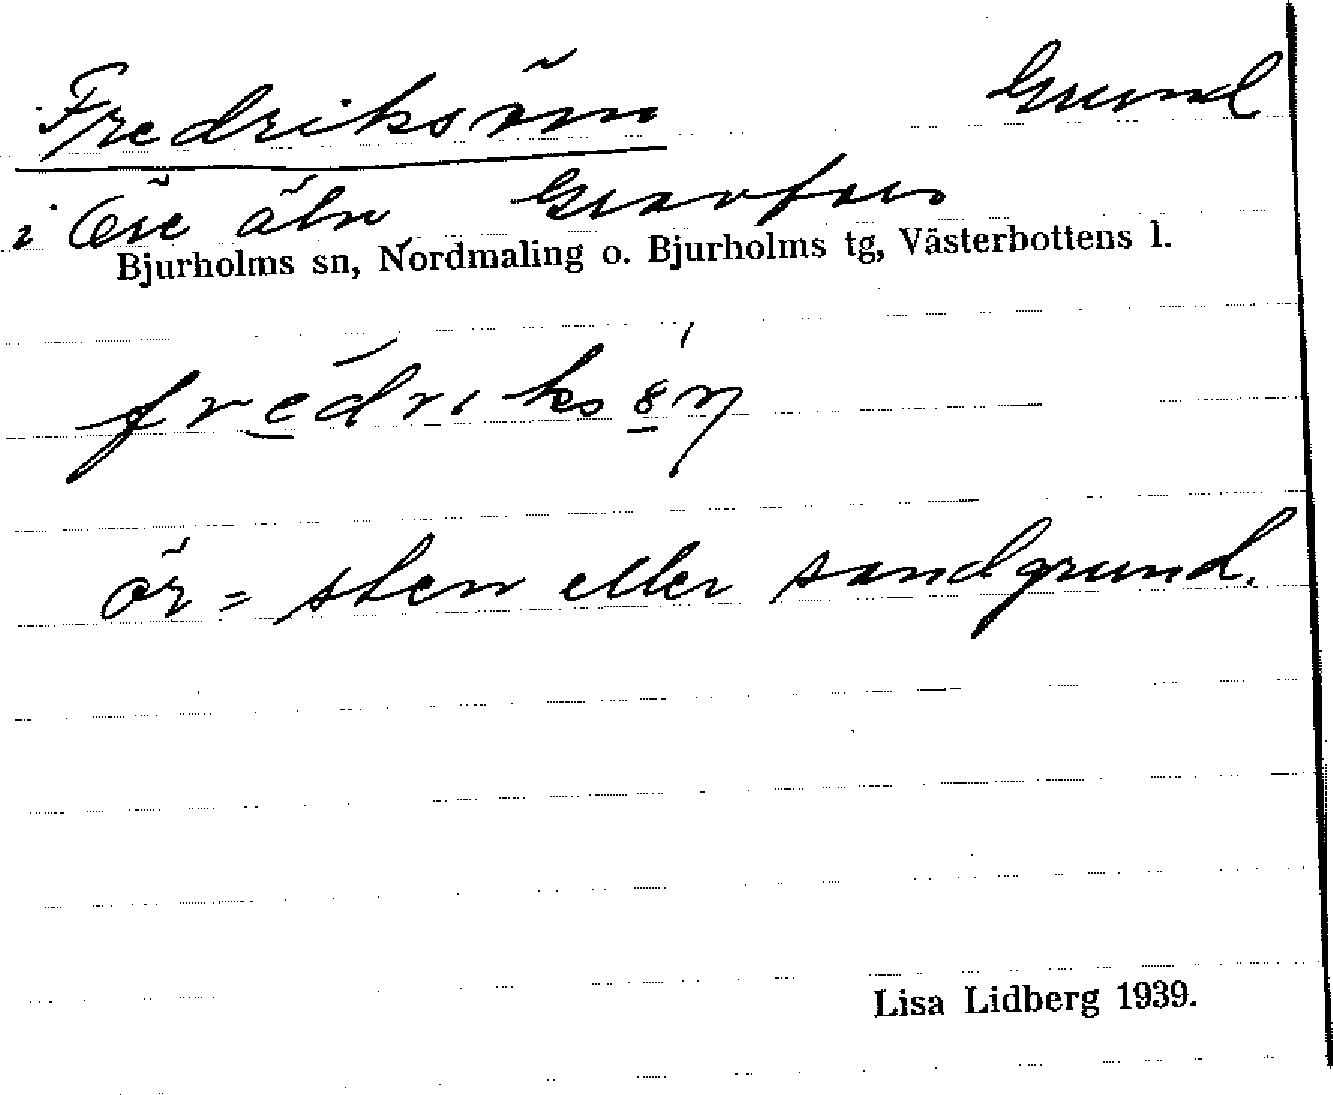 Fredriksörn Grund
i Öre älv Gravfors
Bjurholms sn, Nordmaling o. Bjurholms tg, Västerbottens l.
ör = sten eller sandgrund.
Lisa Lidberg 1939.